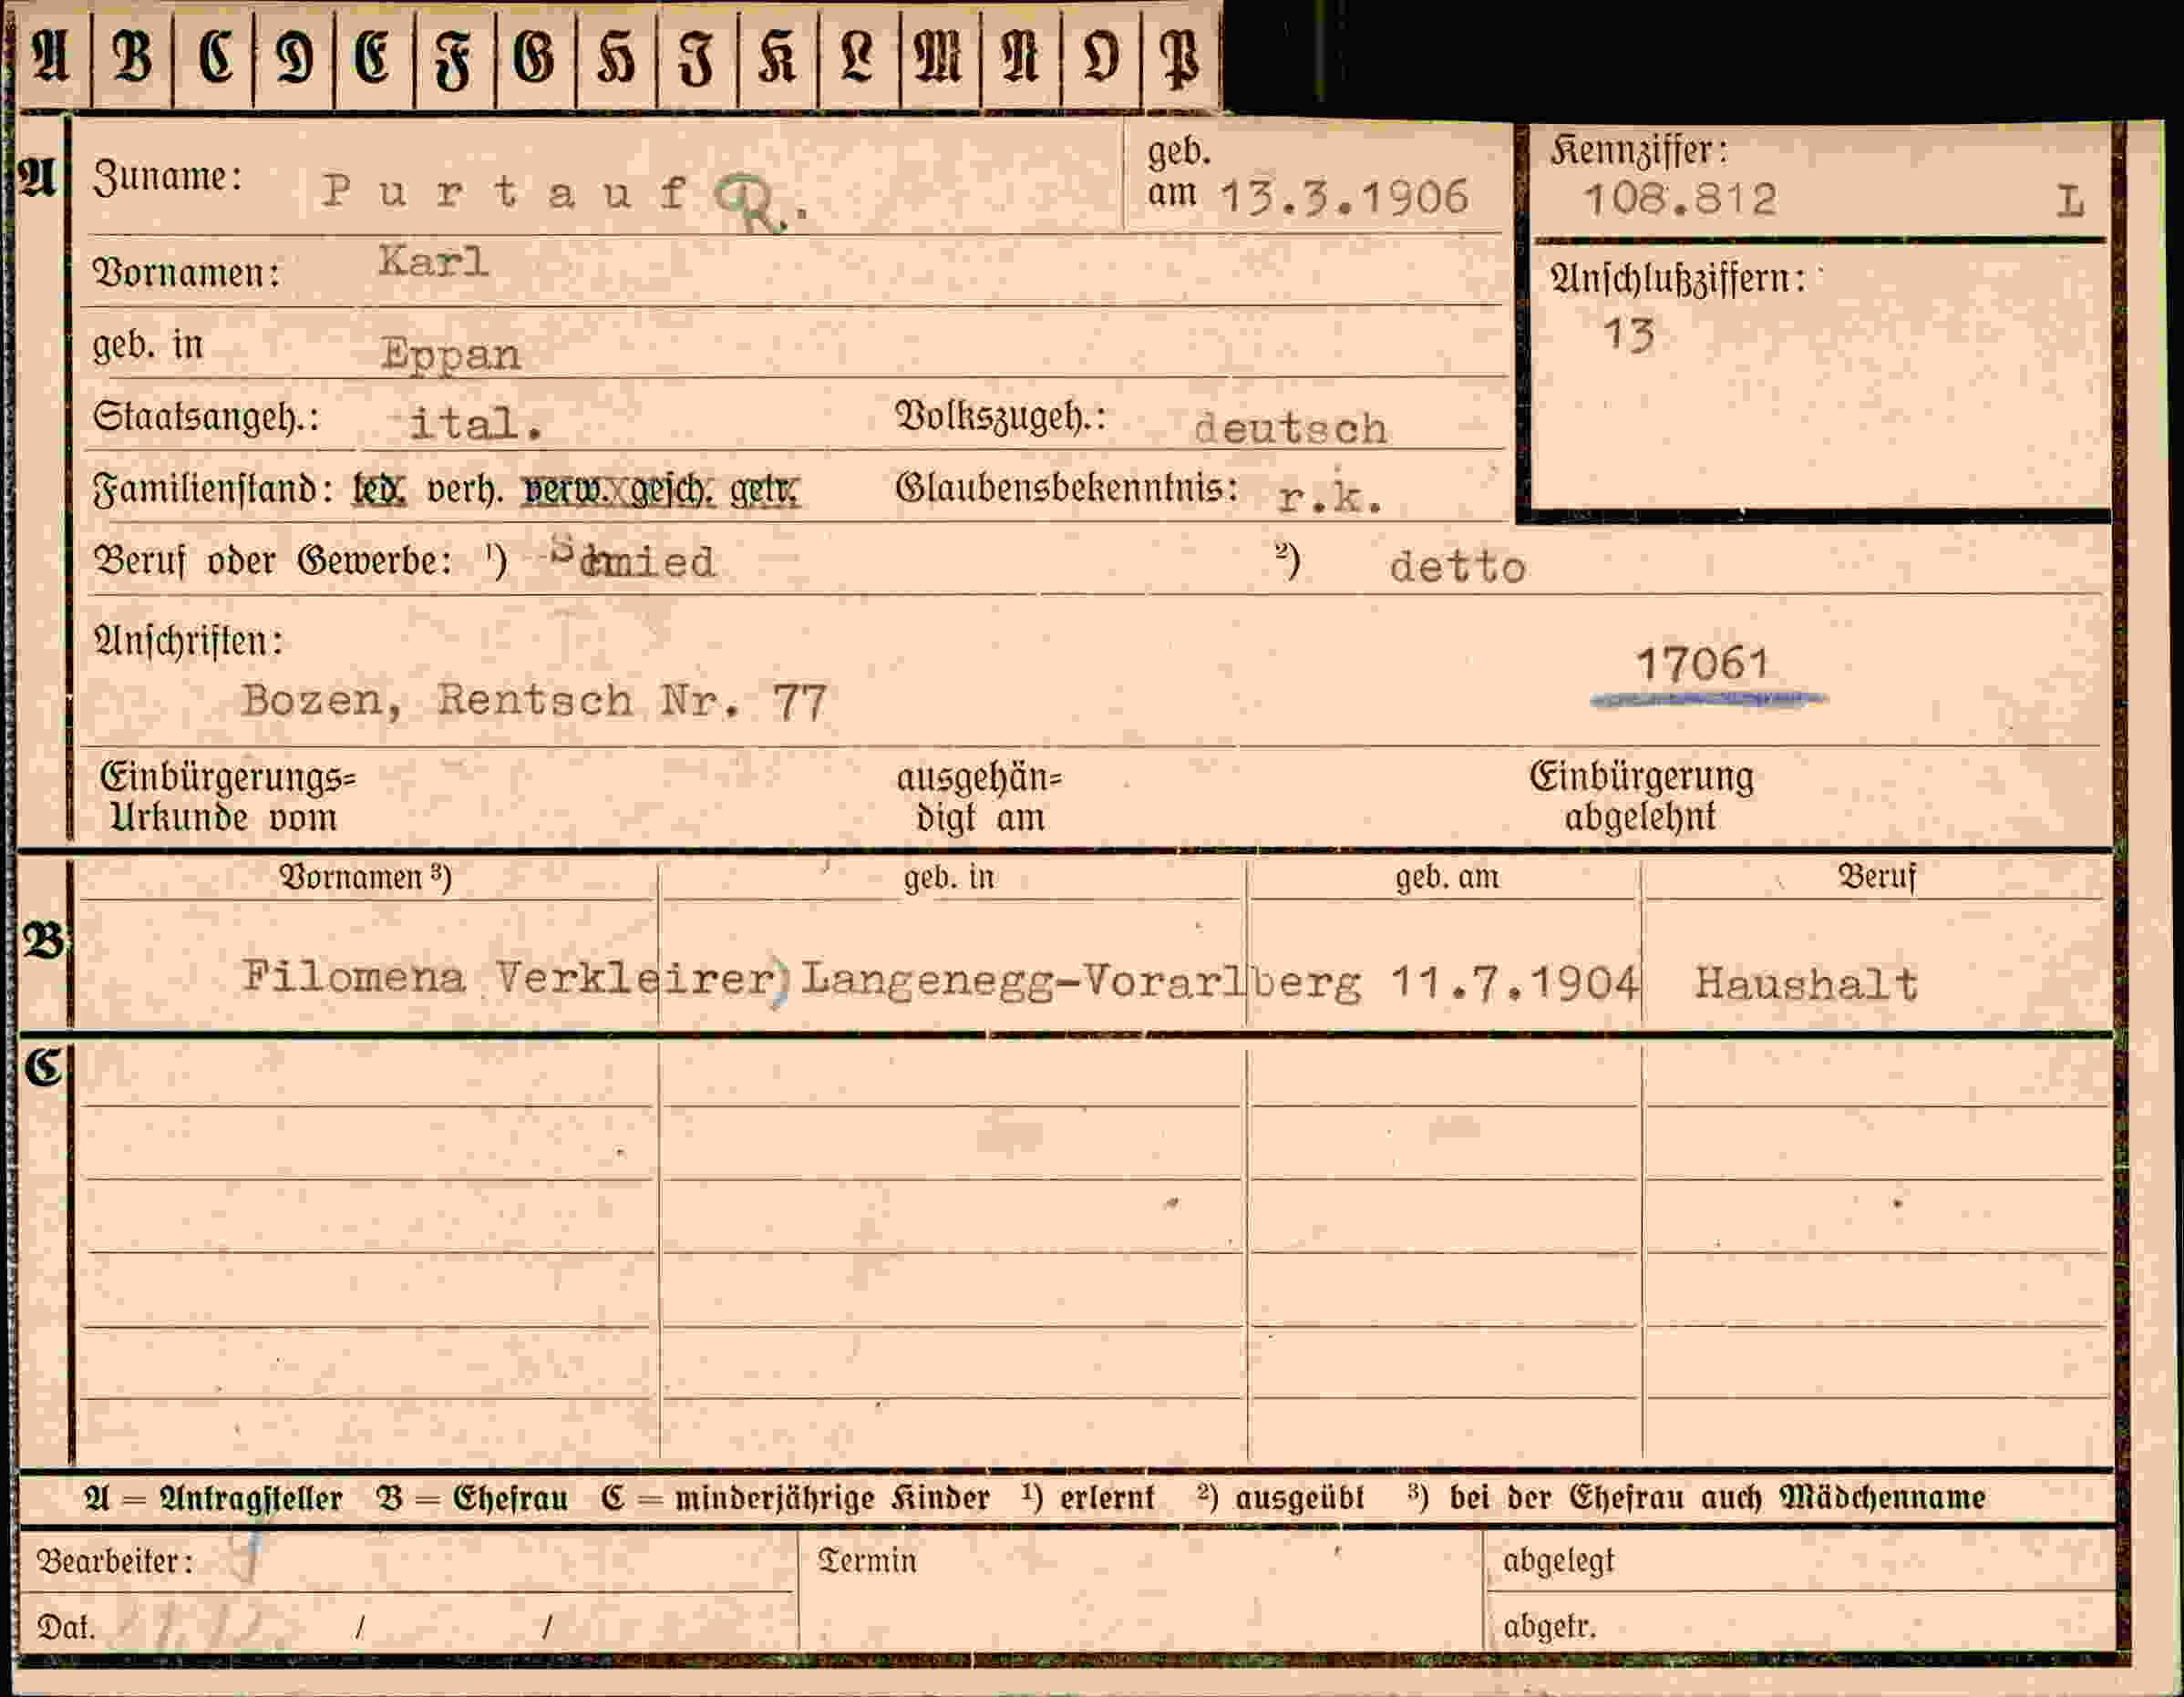 A B C D E F G H I K L M N O P
A Zuname: Purtauf R. geb. am 13.3.1906 Kennziffer: 108.812 L
Vornamen: Karl
Anschlußziffern: 13
geb. in Eppan
Staatsangeh.: ital. Volkszugeh.: deutsch
Familienstand: led. verh. verw. gesch. getr. Glaubensbekenntnis: r.k.
Beruf oder Gewerbe: ¹) ²) detto
Anschriften:
17061
Bozen, Rentsch Nr. 77
Einbürgerungs= ausgehän= Einbürgerung
Urkunde vom digt am abgelehnt
Vornamen ³) geb. in geb. am Beruf
B
Filomena Verkleirer) Langenegg-Vorarlberg 11.7.1904 Haushalt
C
A = Antragsteller B = Ehefrau C = minderjährige Kinder ¹) erlernt ²) ausgeübt ³) bei der Ehefrau auch Mädchenname
Bearbeiter: Termin abgelegt
Dat. / / abgetr.